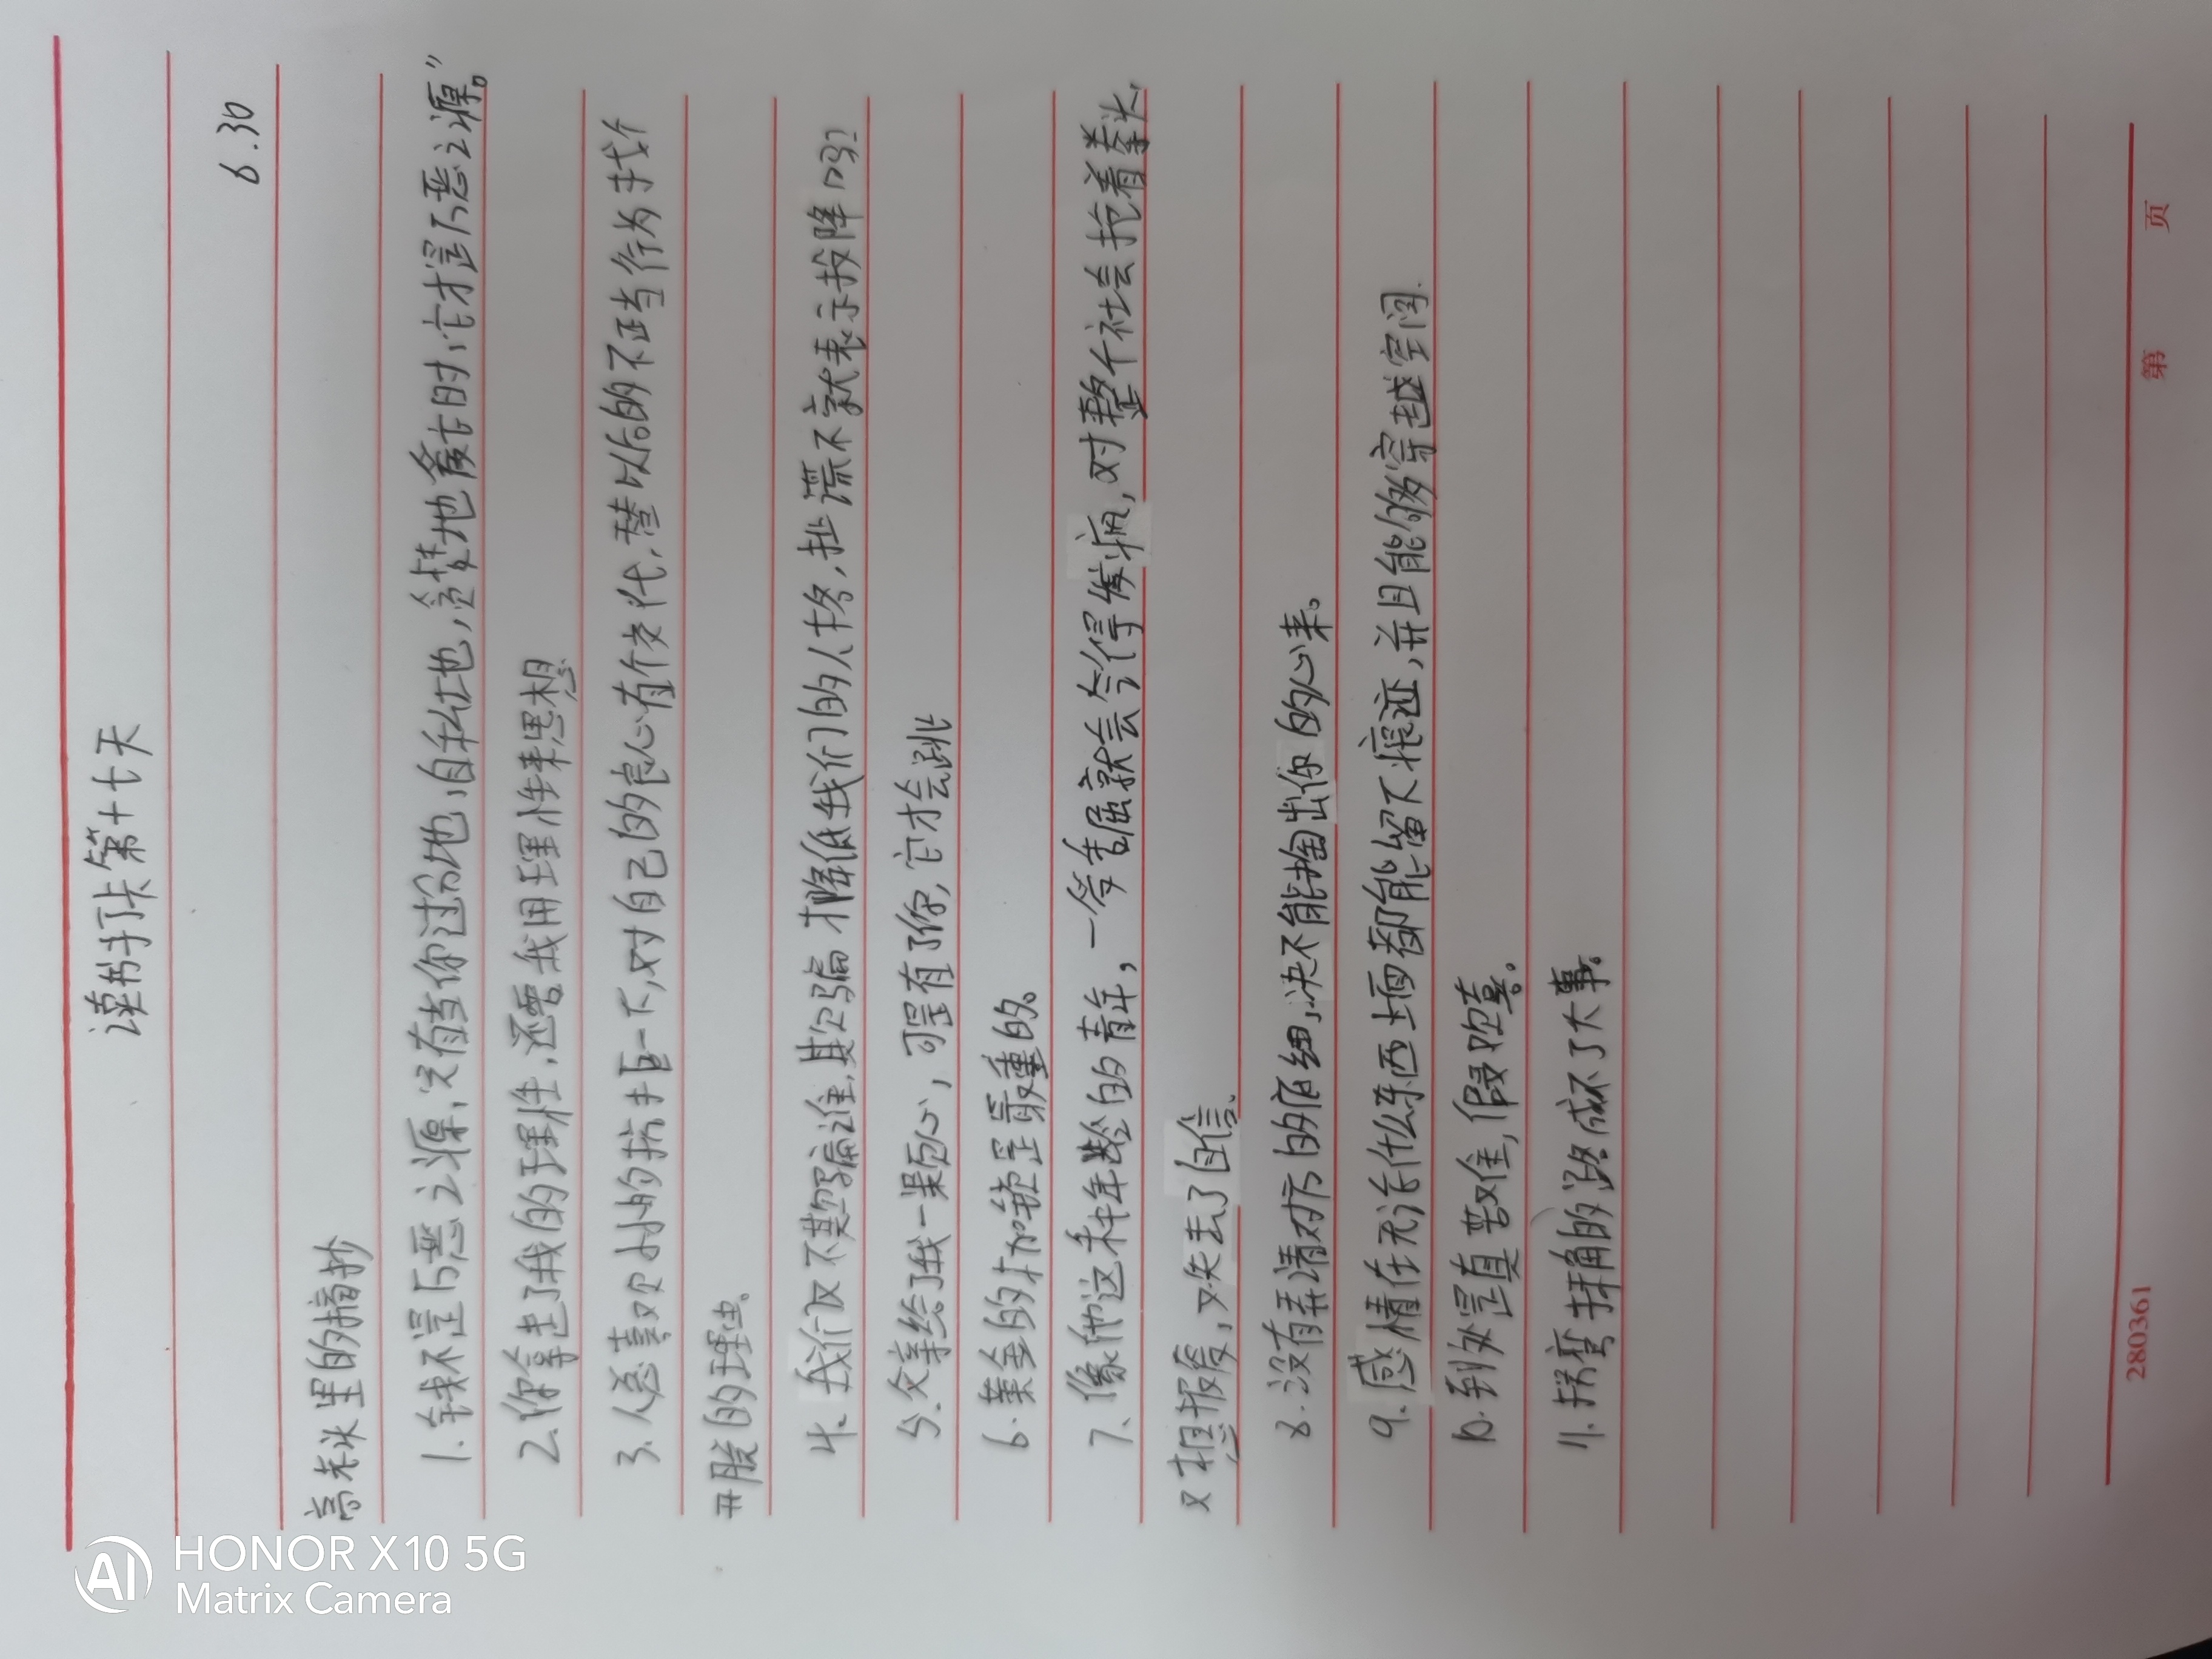 读书打卡第十七天
6.30
高老头里的摘抄
1.钱不是万恶之源,只有当你过分地、自私地,贪婪地爱它时,它才是万恶之源。”
2.你拿走了我的理性,还要我用理性来思想
3.人总喜欢小的抗拒一下,对自己的良心有个交代,替以后的不正当行为找个
开脱的理由。
4.我们仅不欺骗谁,欺骗才降低我们的人格,扯谎不就表示投降吗?
5.父亲给了我一颗心,可是有了你,它才会跳
6.黄金的枷锁是最重的。
7.像他这种年龄的青年,一受委屈就会气得发疯,对整个社会抡着拳头,
又想报复,又失去了自信.
8.没有弄清对方的底细,决不能掏出你的心来。
9.感情在无论什么东西上面都能留下痕迹,并且能够穿越空间.
10.到处是真苦难,假欢喜。
11.拐弯抹角的路成不了大事。
280361
第 页
HONOR X10 5G
Matrix Camera
AI